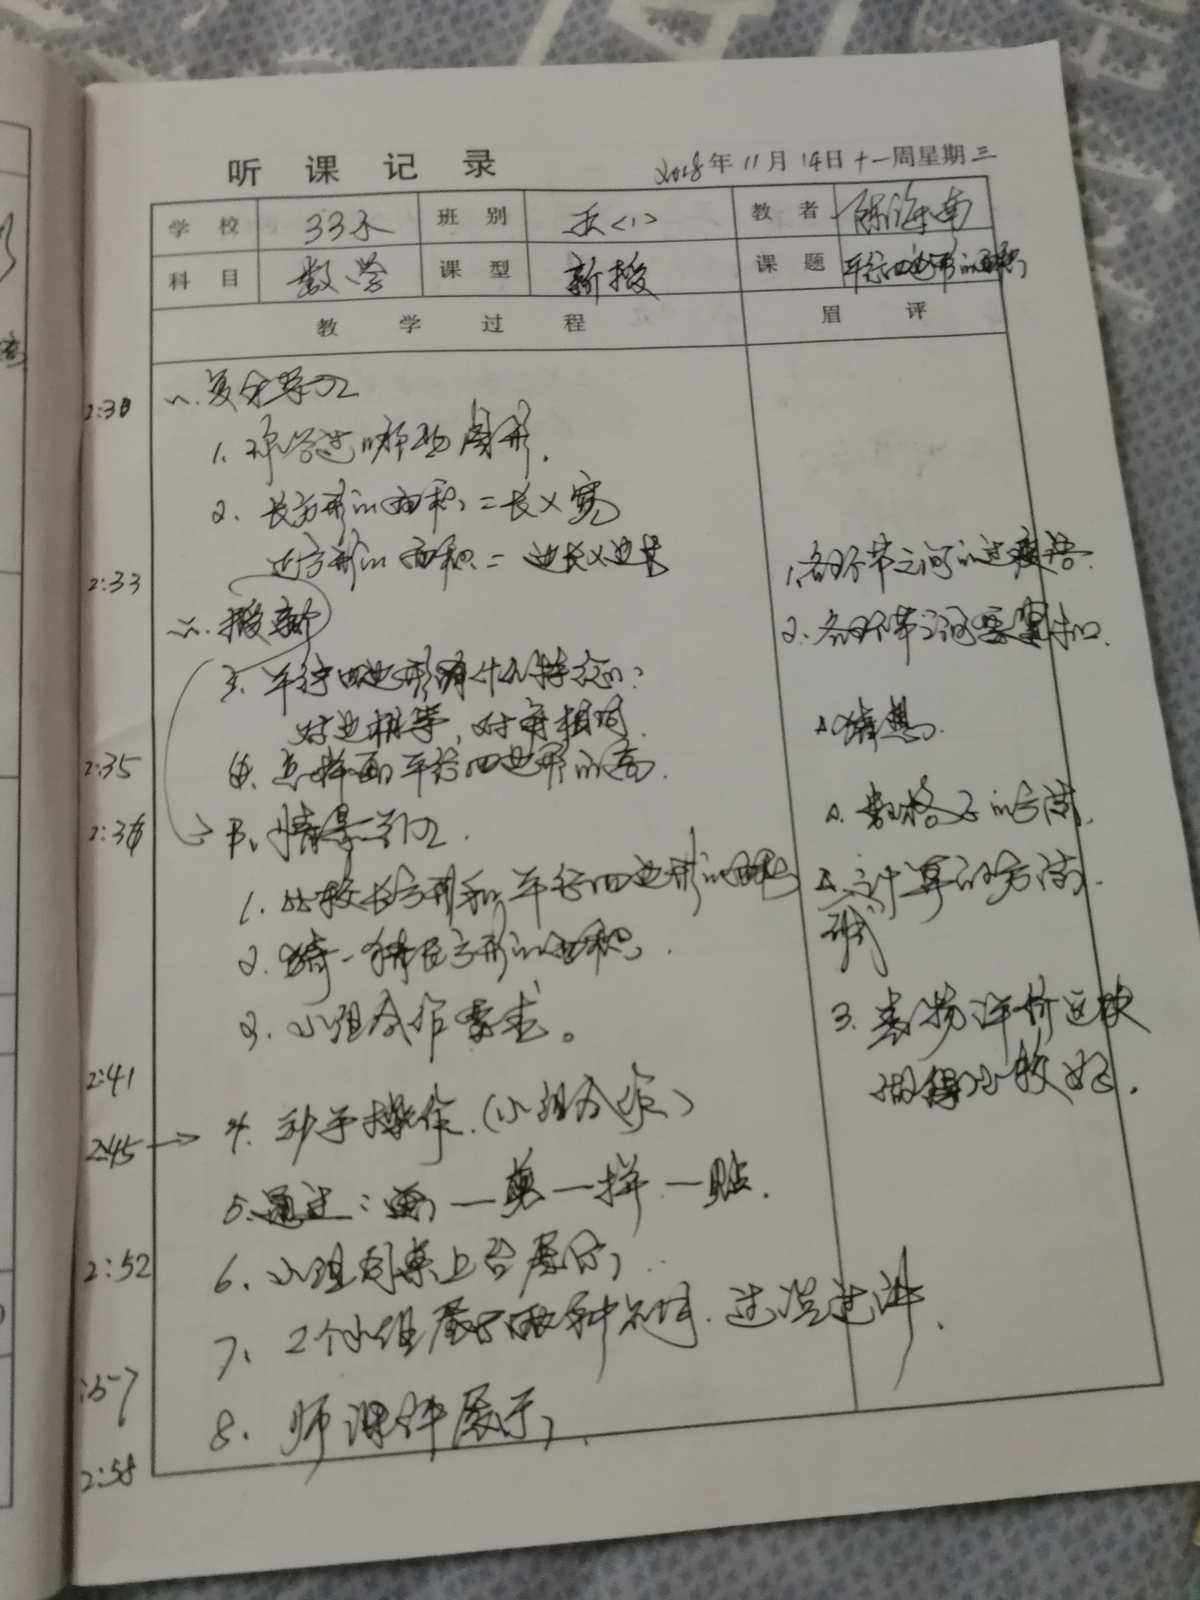 听课记录
2018年11月14日十一周星期三
学校 33小 班别 五<1> 教者 海南
科目 数学 课型 新授 课题 平行四边形的面积
教学过程 眉评
2:30 一、复习引入
1. 学过哪些图形.
2. 长方形的面积=长×宽
正方形的面积=边长×边长
2:33
二. 授新
3. 平行四边形有什么特征:
对边相等,对角相同.
2:35 4. 怎样画平行四边形的高.
2:36 情景引入.
1. 比较长方形和平行四边形的面积
2. 猜一猜长方形的面积.
3. 小组合作要求。
2:41
2:45 → 4. 动手操作.(小组合作)
5. 通过:画一剪一拼一贴.
2:52 6. 小组到桌上台展示,
7. 2个小组展示两种 . 边说边讲、
:57
8. 师课件展示,
2:58
1. 各环节之间的过渡语.
2. 各环节之间要紧扣.
猜想.
数格子的方法.
计算的方法.
3. 评价这块
做得比较好.